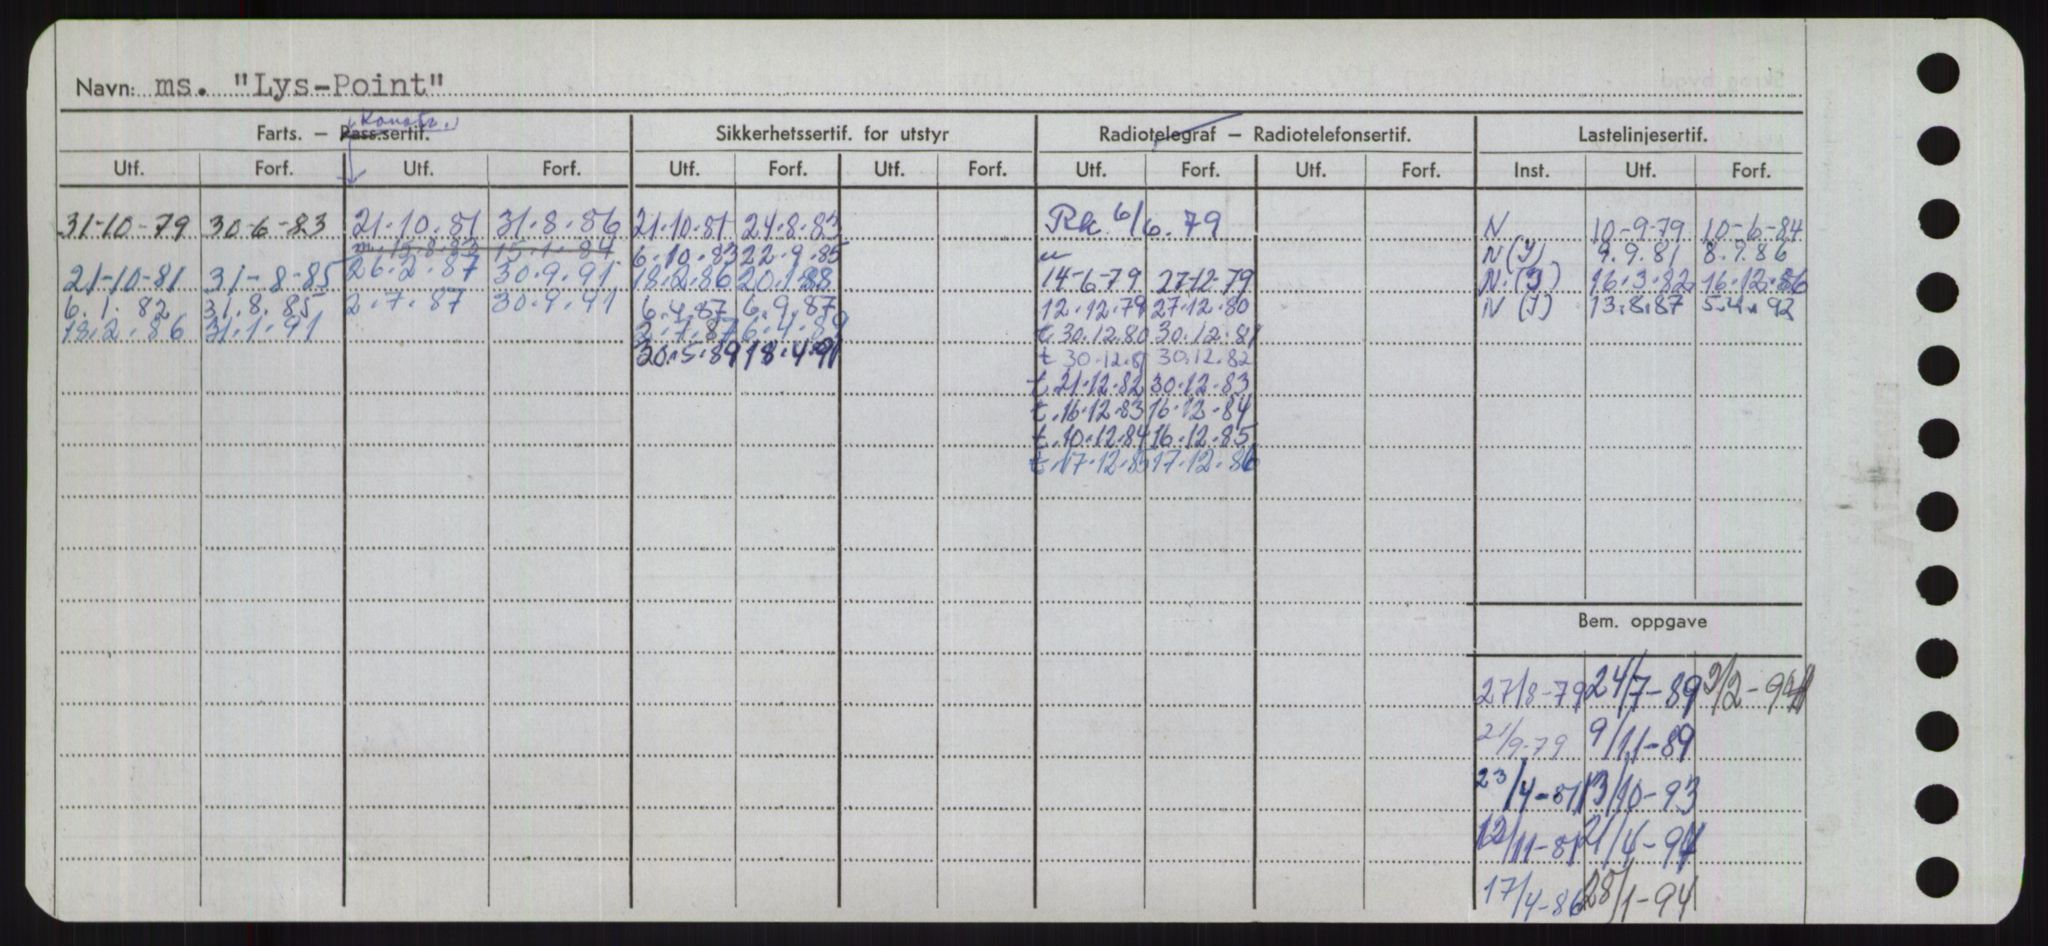 Navn: ms. "Lys-Point"
Konstr.
Farts. — Pass.sertif. Sikkerhetssertif. for utstyr Radiotelegraf — Radiotelefonsertif. Lastelinjesertif.
Utf. Forf. Utf. Forf. Utf. Forf. Utf. Forf. Utf. Forf. Utf. Forf. Inst. Utf. Forf.
31-10-79 30-6-83 21.10.81 31.8.86 21.10.81 24.8.83 Ra. 6/6.79 N 10-9-79 10-6-84
m. 15.8.83 15.1.84 6.10.83 22.9.85 N(I) 9.9.81 8.9.86
21-10-81 31-8-85 26.2.87 30.9.91 18.2.86 20.1.88 14-6-79 27-12-79 N.(I) 16.3.82 16.12.86
6.1.82 31.8.85 2.7.87 30.9.91 6.4.87 6.9.87 12.12.79 27.12.80 N(I) 13.8.87 5.4.92
18.2.86 31.1.91 2.7.87 6.4.89 t 30.12.80 30.12.81
30.5.89 18.4.91 t 30.12.81 30.12.82
t 21.12.82 30.12.83
t. 16.12.83 16.12.84
t. 10.12.84 16.12.85
t. 17.12.85 17.12.86
Bem. oppgave
27/8-79 24/7-89 9/2-94
21/9-79 9/11-89
23/4-81 13/10-93
12/11-81 21/4-94
17/4-86 28/1-94